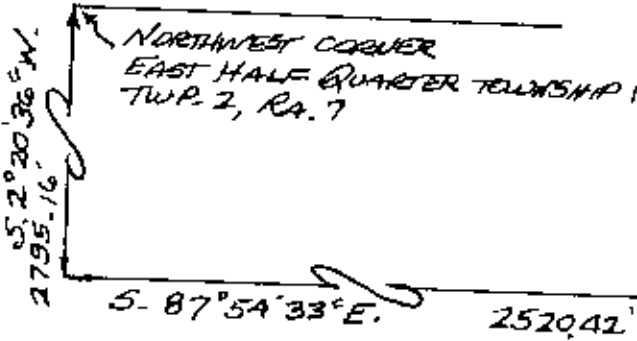 NORTHWEST CORNER
EAST HALF QUARTER TOWNSHIP 1
TWP. 2, RA. 7
S. 2°20'36" W.
2795.16'
S- 87°54'33" E.
2520.42'